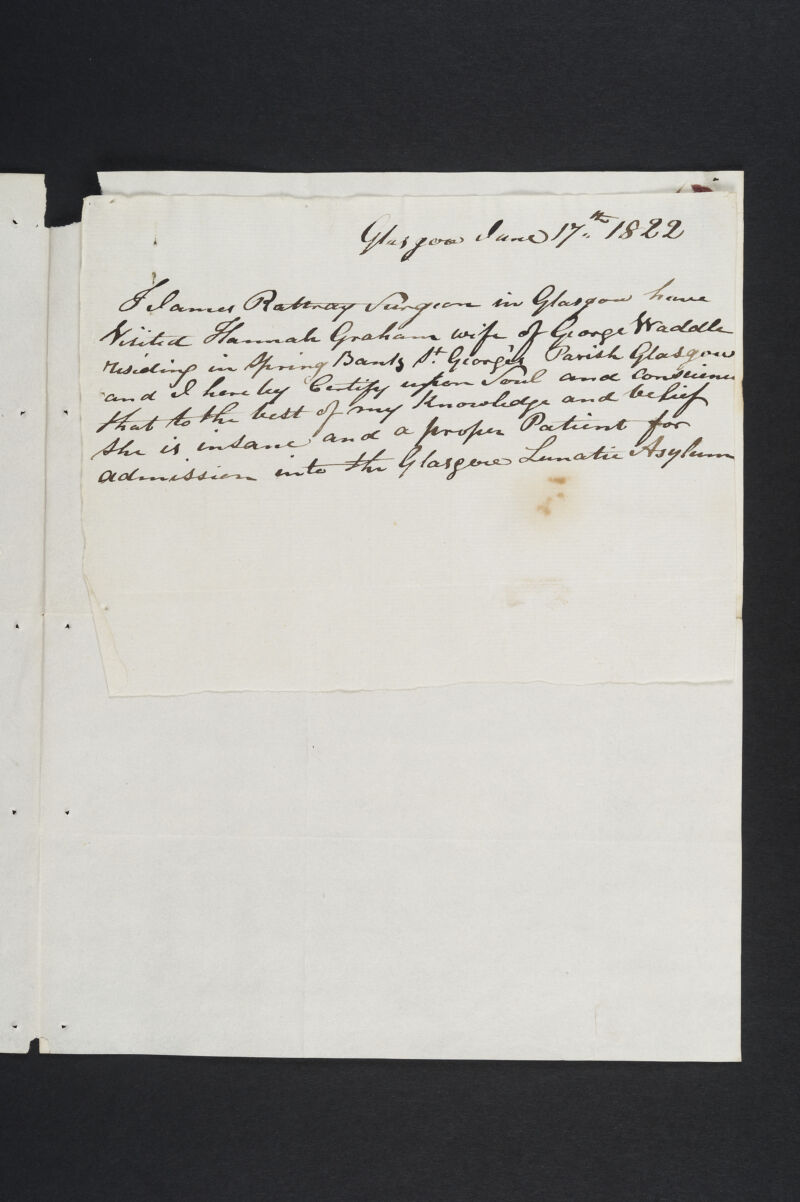 Glasgow June 17th 1822
I James Rattray Surgeon in Glasgow have
Visited Hannah Graham wife of George Waddle
residing in Spring Bank St George's Parish Glasgow
and I hereby Certify upon Soul and conscience
that to the best of my Knowledge and belief
she is insane and a proper Patient for
admission into the Glasgow Lunatic Asylum